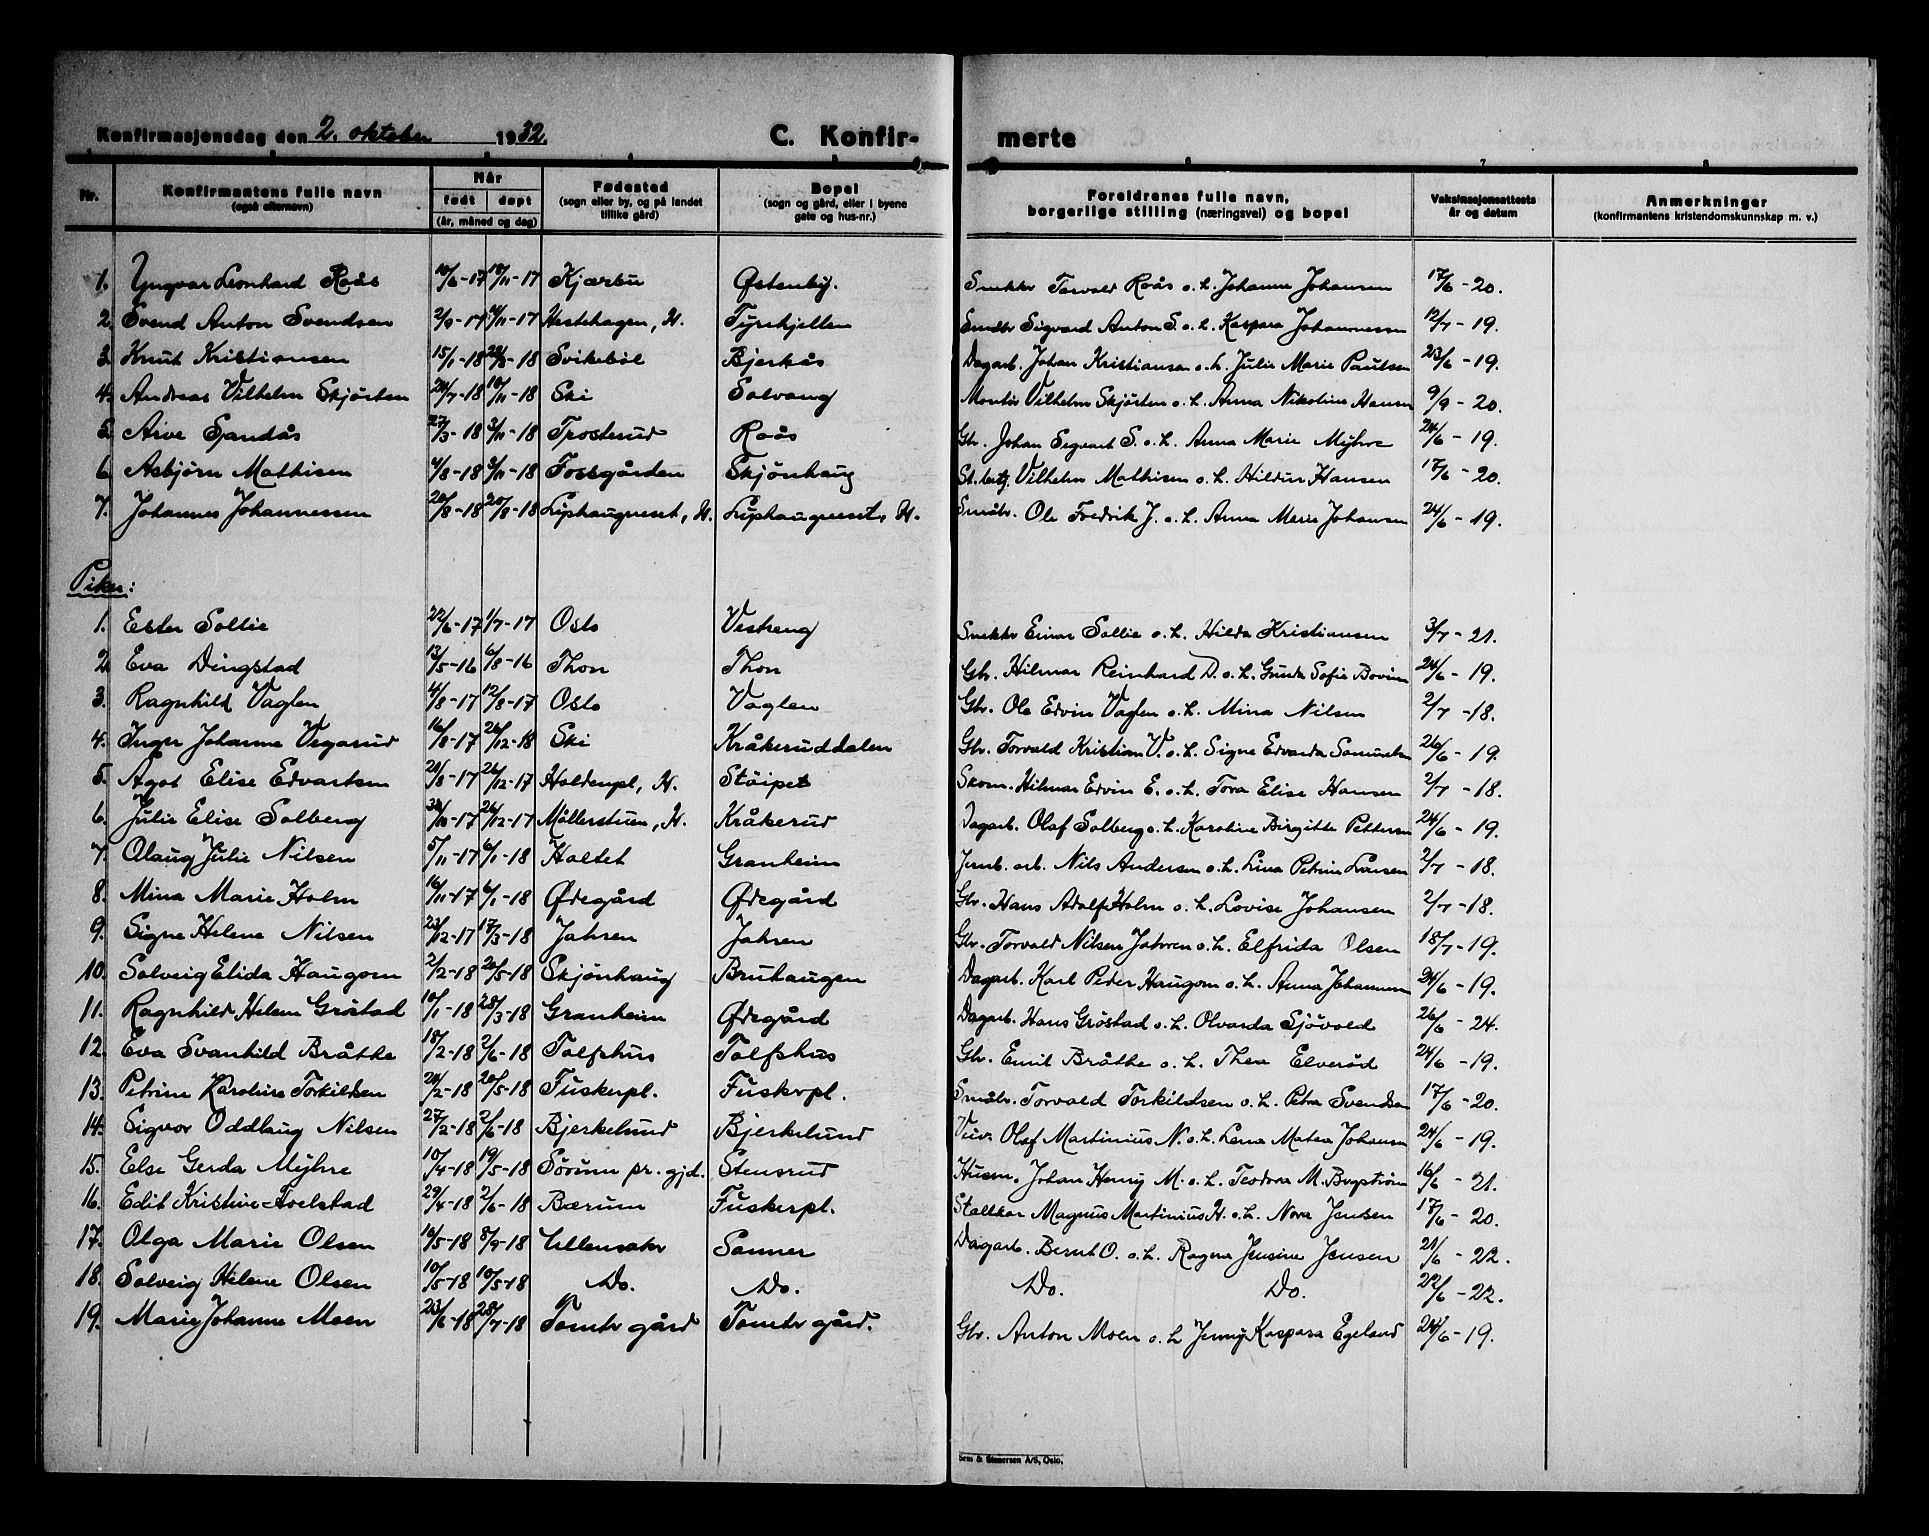 Konfirmasjonsdag den 2. oktober 1932. C. Konfir-merte
Nr. Konfirmantens fulle navn (også efternavn) Når født døpt (år, måned og dag) Fødested (sogn eller by, og på landet tillike gård) Bopel (sogn og gård, eller i byene gate og hus-nr.) Foreldrenes fulle navn, borgerlige stilling (næringsvei) og bopel Vaksinasjonsattests år og datum Anmerkninger (konfirmantens kristendomskunnskap m. v.)
6 7 8
1. Yngvar Leonhard Roås 10/6-17 18/11-17 Kjærbu Østenby. Snekker Torvald Roås o.h. Johanne Johansen 17/6-20.
2. Svend Anton Svendsen 2/9-17 11-17 Hestehagen, H. Tyrihjellen Småbr. Sigvard Anton S. o.h. Kaspara Johannessen 12/7-19.
3. Knut Kristiansen 15/1-18 18 Svikebøl Bjerkås Dagarb. Johan Kristiansen o.h. Julie Marie Paulsen 23/6-19.
4. Andreas Vilhelm Skjørten 20/7-18 10/11-18 Ski Solvang Montør Vilhelm Skjørten o.h. Anna Nikoline Hansen 9/9-20.
5. Arve Sandås 27/3-18 3/11-18 Trosterud Roås Gbr. Johan Sigvart S. o.h. Anna Marie Myhre 24/6-19.
6. Asbjørn Mathisen 4/8-18 3/11-18 Fossgården Skjønhaug St.betj. Vilhelm Mathisen o.h. Hildur Hansen 17/6-20.
7. Johannes Johannessen 20/8-18 20/8-18 Lyshaugneset, H. Lyshaugneset, H. Småbr. Ole Fredrik J. o.h. Anna Marie Johansen 24/6-19.
Piker:
1. Ester Sollie 22/6-17 1/7-17 Oslo Vestreng Snekker Einar Sollie o.h. Hilda Kristiansen 3/7-21.
2. Eva Dingstad 13/5-16 6/8-16 Thon Thon Gbr. Hilmar Reinhard D. o.h. Gunda Sofie Bovim 24/6-19.
3. Ragnhild Vaglen 4/8-17 12/8-17 Oslo Vaglen Gbr. Ole Edvin Vaglen o.h. Mina Nilsen 2/7-18.
4. Inger Johanne Vegarud 16/8-17 26/12-18 Ski Kråkeruddalen Gbr. Torvald Kristian V. o.h. Signe Edvarda Samuelsen 26/6-19.
5. Agot Elise Edvartsen 21/8-17 26/12-17 Holdenpl, H. Støipet Skom. Hilmar Edvin E. o.h. Tora Elise Hansen 2/7-18.
6. Julie Elise Solberg 30/10-17 26/12-17 Møllerstuen, H. Kråkerud Dagarb. Olaf Solberg o.h. Karoline Birgitte Pettersen 24/6-19.
7. Olaug Julie Nilsen 5/11-17 6/1-18 Holtet Granheim Jernb. arb. Nils Andersen o.h. Lina Petrine Larsen 2/7-18.
8. Mina Marie Holm 16/11-17 6/1-18 Ødegård Ødegård Gbr. Hans Adolf Holm o.h. Lovise Johansen 2/7-18.
9. Signe Helene Nilsen 23/12-17 17/3-18 Jahren Jahren Gbr. Torvald Nilsen Jahren o.h. Elfrida Olsen 18/7-19.
10. Solveig Elida Haugom 2/2-18 20/5-18 Skjønhaug Bruhaugen Dagarb. Karl Peder Haugom o.h. Anna Johannesen 24/6-19.
11. Ragnhild Helene Grøstad 10/1-18 28/3-18 Granheim Ødegård Dagarb. Hans Grøstad o.h. Olvarda Sjøvold 26/6-24.
12. Eva Svanhild Bråthe 18/2-18 2/6-18 Tolfshus Tolfshus Gbr. Emil Bråthe o.h. Thea Elverød 24/6-19.
13. Petrine Karoline Torkildsen 24/2-18 20/5-18 Fuskerpl. Fuskerpl. Småbr. Torvald Torkildsen o.h. Petra Svendsen 17/6-20.
14. Sigvor Oddlaug Nilsen 27/2-18 2/6-18 Bjerkelund Bjerkelund Olaf Martinius N. o.h. Lena Matea Johansen 24/6-19.
15. Else Gerda Myhre 10/4-18 19/5-18 Sørum pr. gjd. Stensrud Husm. Johan Henry M. o.h. Teodora M. Bugstrøm 16/6-21.
16. Edit Kristine Hvelstad 29/4-18 2/6-18 Bærum Fuskerpl. Stallkar Magnus Martinius H. o.h. Nora Jensen 17/6-20.
17. Olga Marie Olsen 10/5-18 8/9-18 Ullensaker Sanner Dagarb. Bernt O. o.h. Ragna Jensine Jensen 21/6-22.
18. Solveig Helene Olsen 10/5-18 10/5-18 Do. Do. Do. Do. 22/6-22.
19. Marie Johanne Moen 23/6-18 28/7-18 Tomter gård Tomter gård. Gbr. Anton Moen o.h. Jenny Kaspara Egeland 24/6-19.
Sem & Stenersen A/S, Oslo.